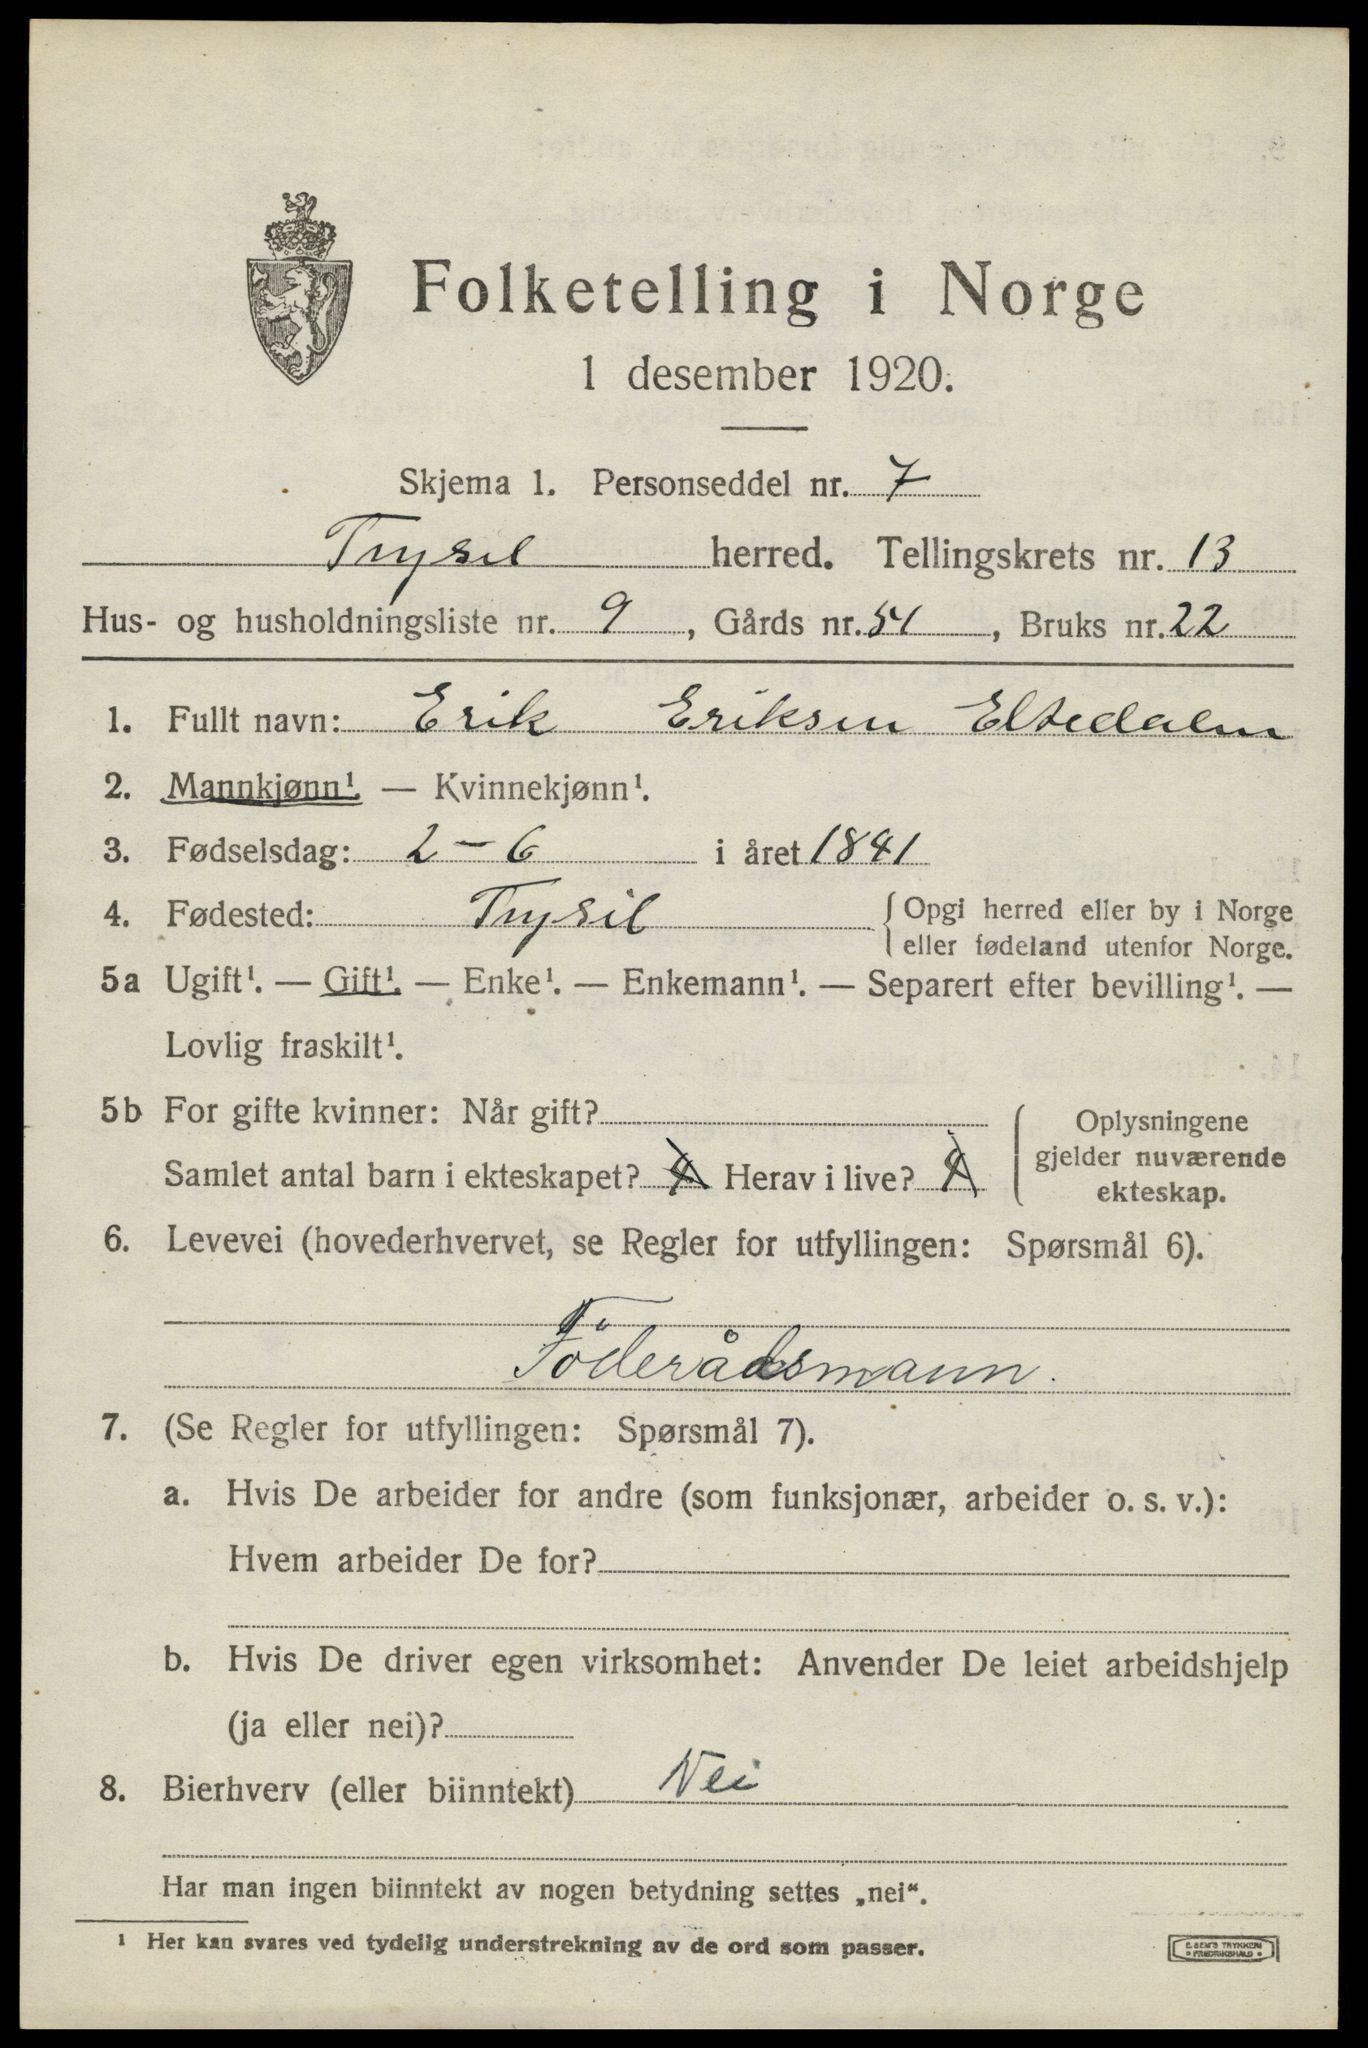 Folketelling i Norge
1 desember 1920.
Skjema 1. Personseddel nr. 7
Trysil herred. Tellingskrets nr. 13
Hus- og husholdningsliste nr. 9, Gårds nr. 54, Bruks nr. 22
1. Fullt navn: Erik Eriksen Eltedalen
2. Mannkjønn¹. — Kvinnekjønn¹.
3. Fødselsdag: 2 - 6 i året 1841
4. Fødested: Trysil { Opgi herred eller by i Norge
eller fødeland utenfor Norge.
5a Ugift¹. — Gift¹. — Enke¹. — Enkemann¹. — Separert efter bevilling¹. —
Lovlig fraskilt¹.
5b For gifte kvinner: Når gift?
Samlet antal barn i ekteskapet? Herav i live?
Oplysningene
gjelder nuværende
ekteskap.
6. Levevei (hovederhvervet, se Regler for utfyllingen: Spørsmål 6).
Föderådsmann.
7. (Se Regler for utfyllingen: Spørsmål 7).
a. Hvis De arbeider for andre (som funksjonær, arbeider o. s. v.):
Hvem arbeider De for?
b. Hvis De driver egen virksomhet: Anvender De leiet arbeidshjelp
(ja eller nei)?
8. Bierhverv (eller biinntekt) Nei
Har man ingen biinntekt av nogen betydning settes „nei“.
¹ Her kan svares ved tydelig understrekning av de ord som passer.
E. SEM'S TRYKKERI
FREDRIKSHALD